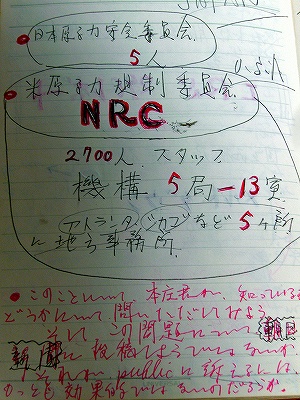 日本原子力安全委員会
5人
米原子力規制委員会
NRC
2700人 スタッフ
機構 5局-13室
アトランタ シカゴなど 5ヶ所
に地方事務所.
このことについて 本庄君が、知っている
どうかについて 問いただしてみよう
そして この問題について 朝日
新聞に 投稿しようでないか
それが public に訴えるには
もっとも効果的ではないのだろうか.